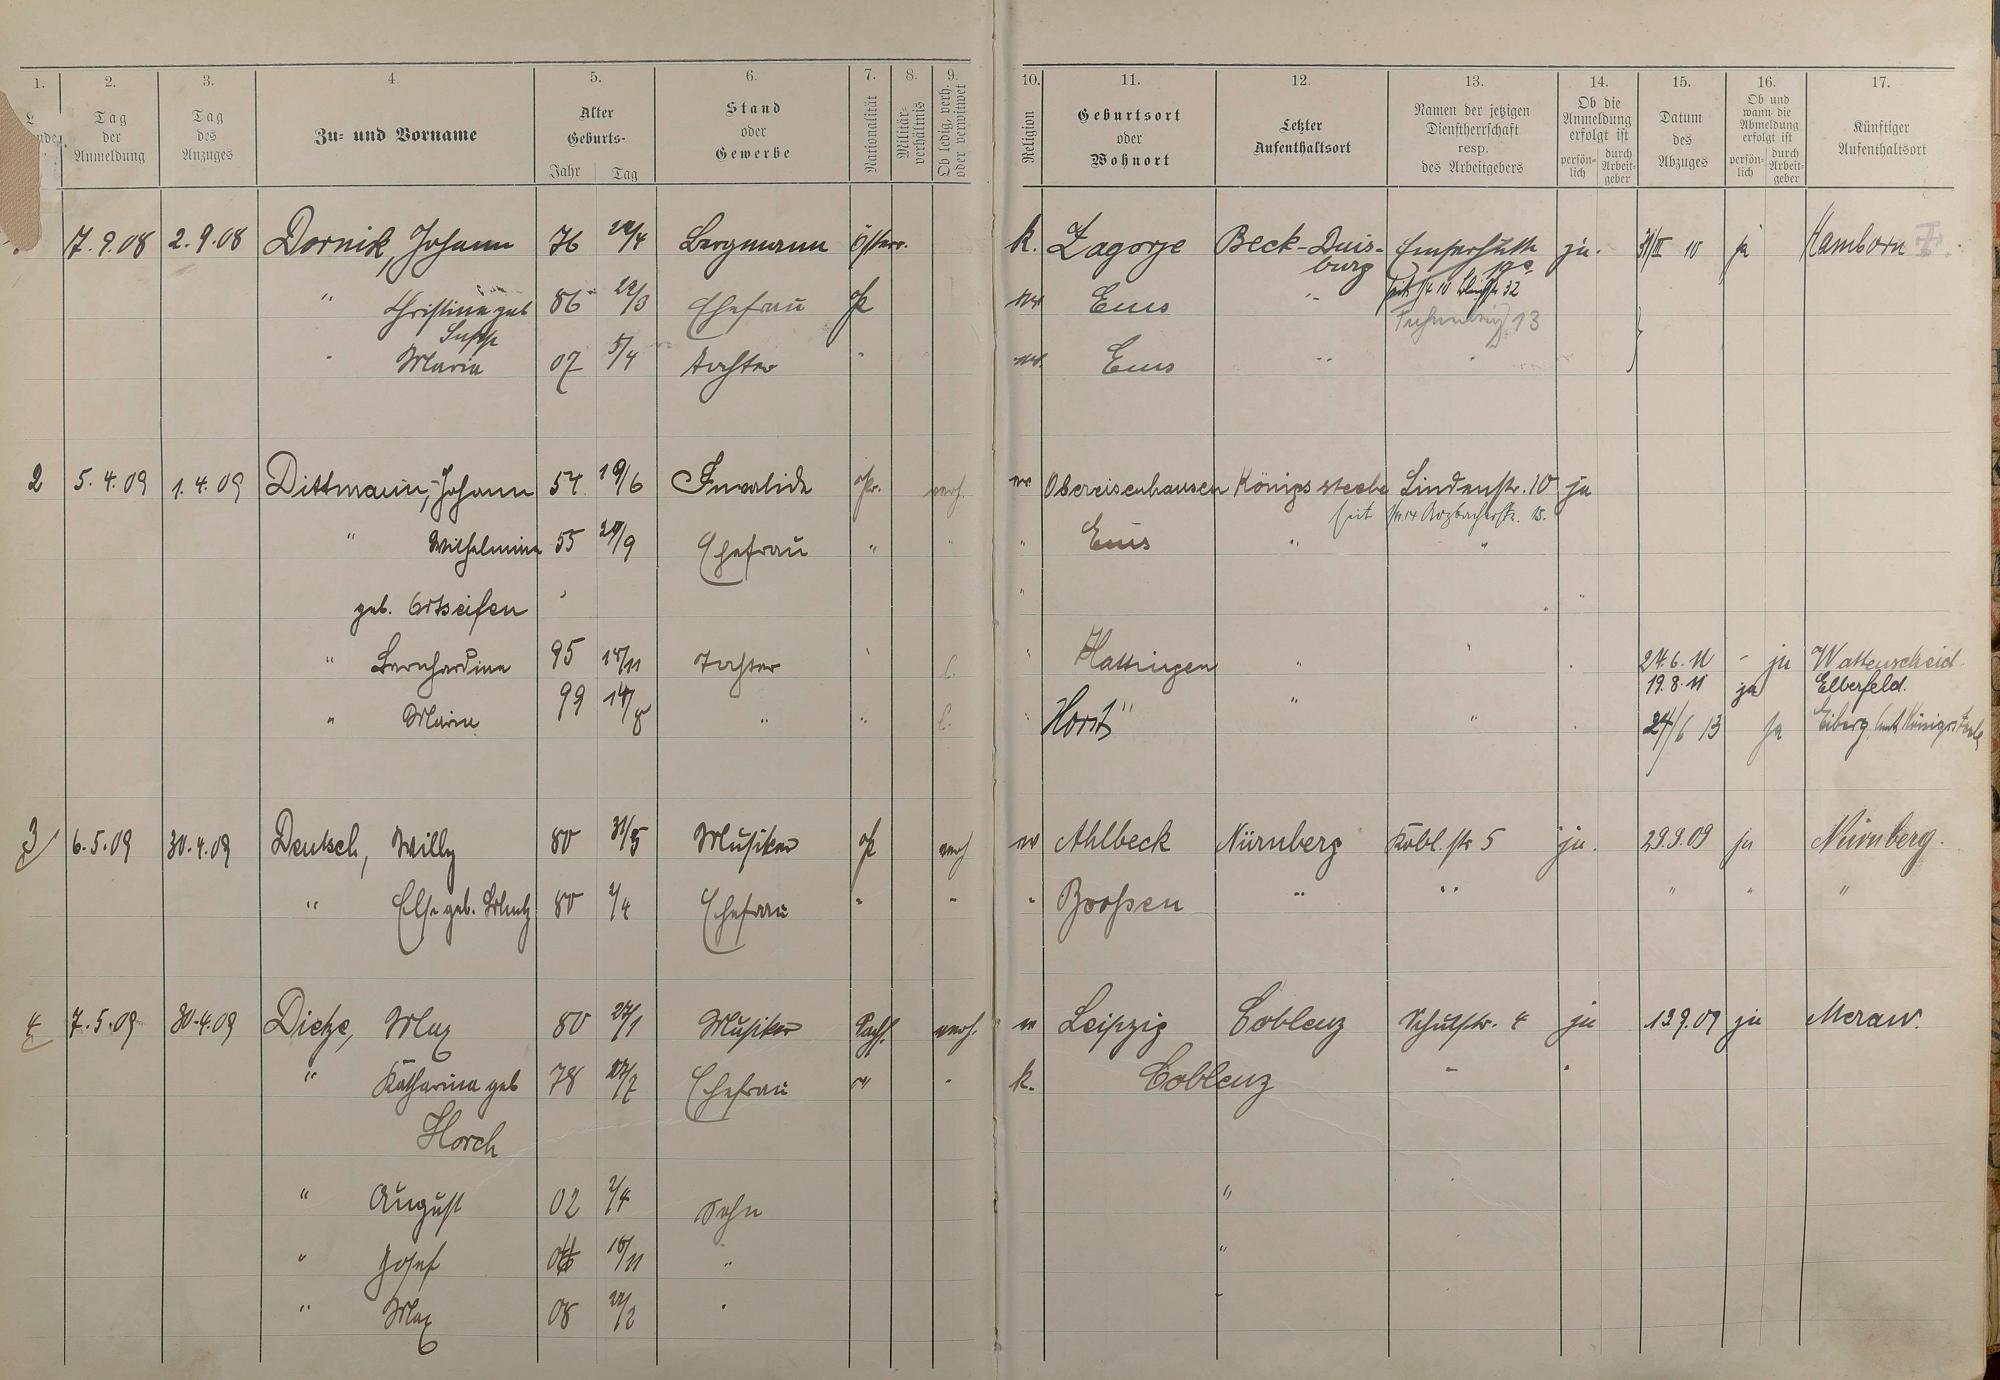 1. 2. 3. 4. 5. 6. 7. 8. 9. 10. 11. 12. 13. 14. 15. 16. 17.
Tag der Anmeldung
Tag des Anzuges
Zu- und Vorname
Alter
Geburts-
Jahr Tag
Stand oder Gewerbe
Nationalität
Militär-verhältnis
Ob ledig, verh. oder verwitwet
Religion
Geburtsort oder Wohnort
Letzter Aufenthaltsort
Namen der jetzigen Dienstherrschaft resp. des Arbeitgebers
Ob die Anmeldung erfolgt ist
persön-lich durch Arbeit-geber
Datum des Abzuges
Ob und wann die Abmeldung erfolgt ist
persön-lich durch Arbeit-geber
Künftiger Aufenthaltsort
7.9.08 2.9.08 Dornik, Johann 76 Bergmann Österr. k. Zagorje Beck-Duis- ja. 10 ja Hamborn
burg
" Christine geb 86 22/3 Ehefrau Ems "
13
" Maria 07 5/4 Tochter " Ems " "
2 5.4.09 1.4.09 Dittmann, Johann 54 19/6 Invalide verh. Obereisenhausen Königssteele Lindenstr. 10 ja
seit Arzbacherstr. 15.
" Wilhelmine 55 29/9 Ehefrau " " " Ems " "
geb. Ortseifen " "
" Bernhardine 95 14/11 Tochter " l. " Hattingen " " 24.6.11 - ja Wattenscheid
19.8.11 ja Elberfeld.
" Maria 99 14/8 " " l. " Horst " " 24/6 13 ja Eiberg, Amt Königssteele
3 6.5.09 30.4.09 Deutsch, Willy 80 31/5 Musiker verh Ahlbeck Nürnberg Kobl. str 5 ja. 29.9.09 ja Nürnberg.
" Else geb. 80 2/4 Ehefrau " " " " " " " "
4 7.5.09 30.4.09 Dietze, Max 80 27/1 Musiker Sachs. verh. Leipzig Coblenz Schulstr. 4 ja 13.9.09 ja Meran.
" Katharina geb 78 27/7 Ehefrau " " k. Coblenz " "
Horch
" August 02 2/4 Sohn "
" Josef 16/11 " "
" Max 08 22/2 "